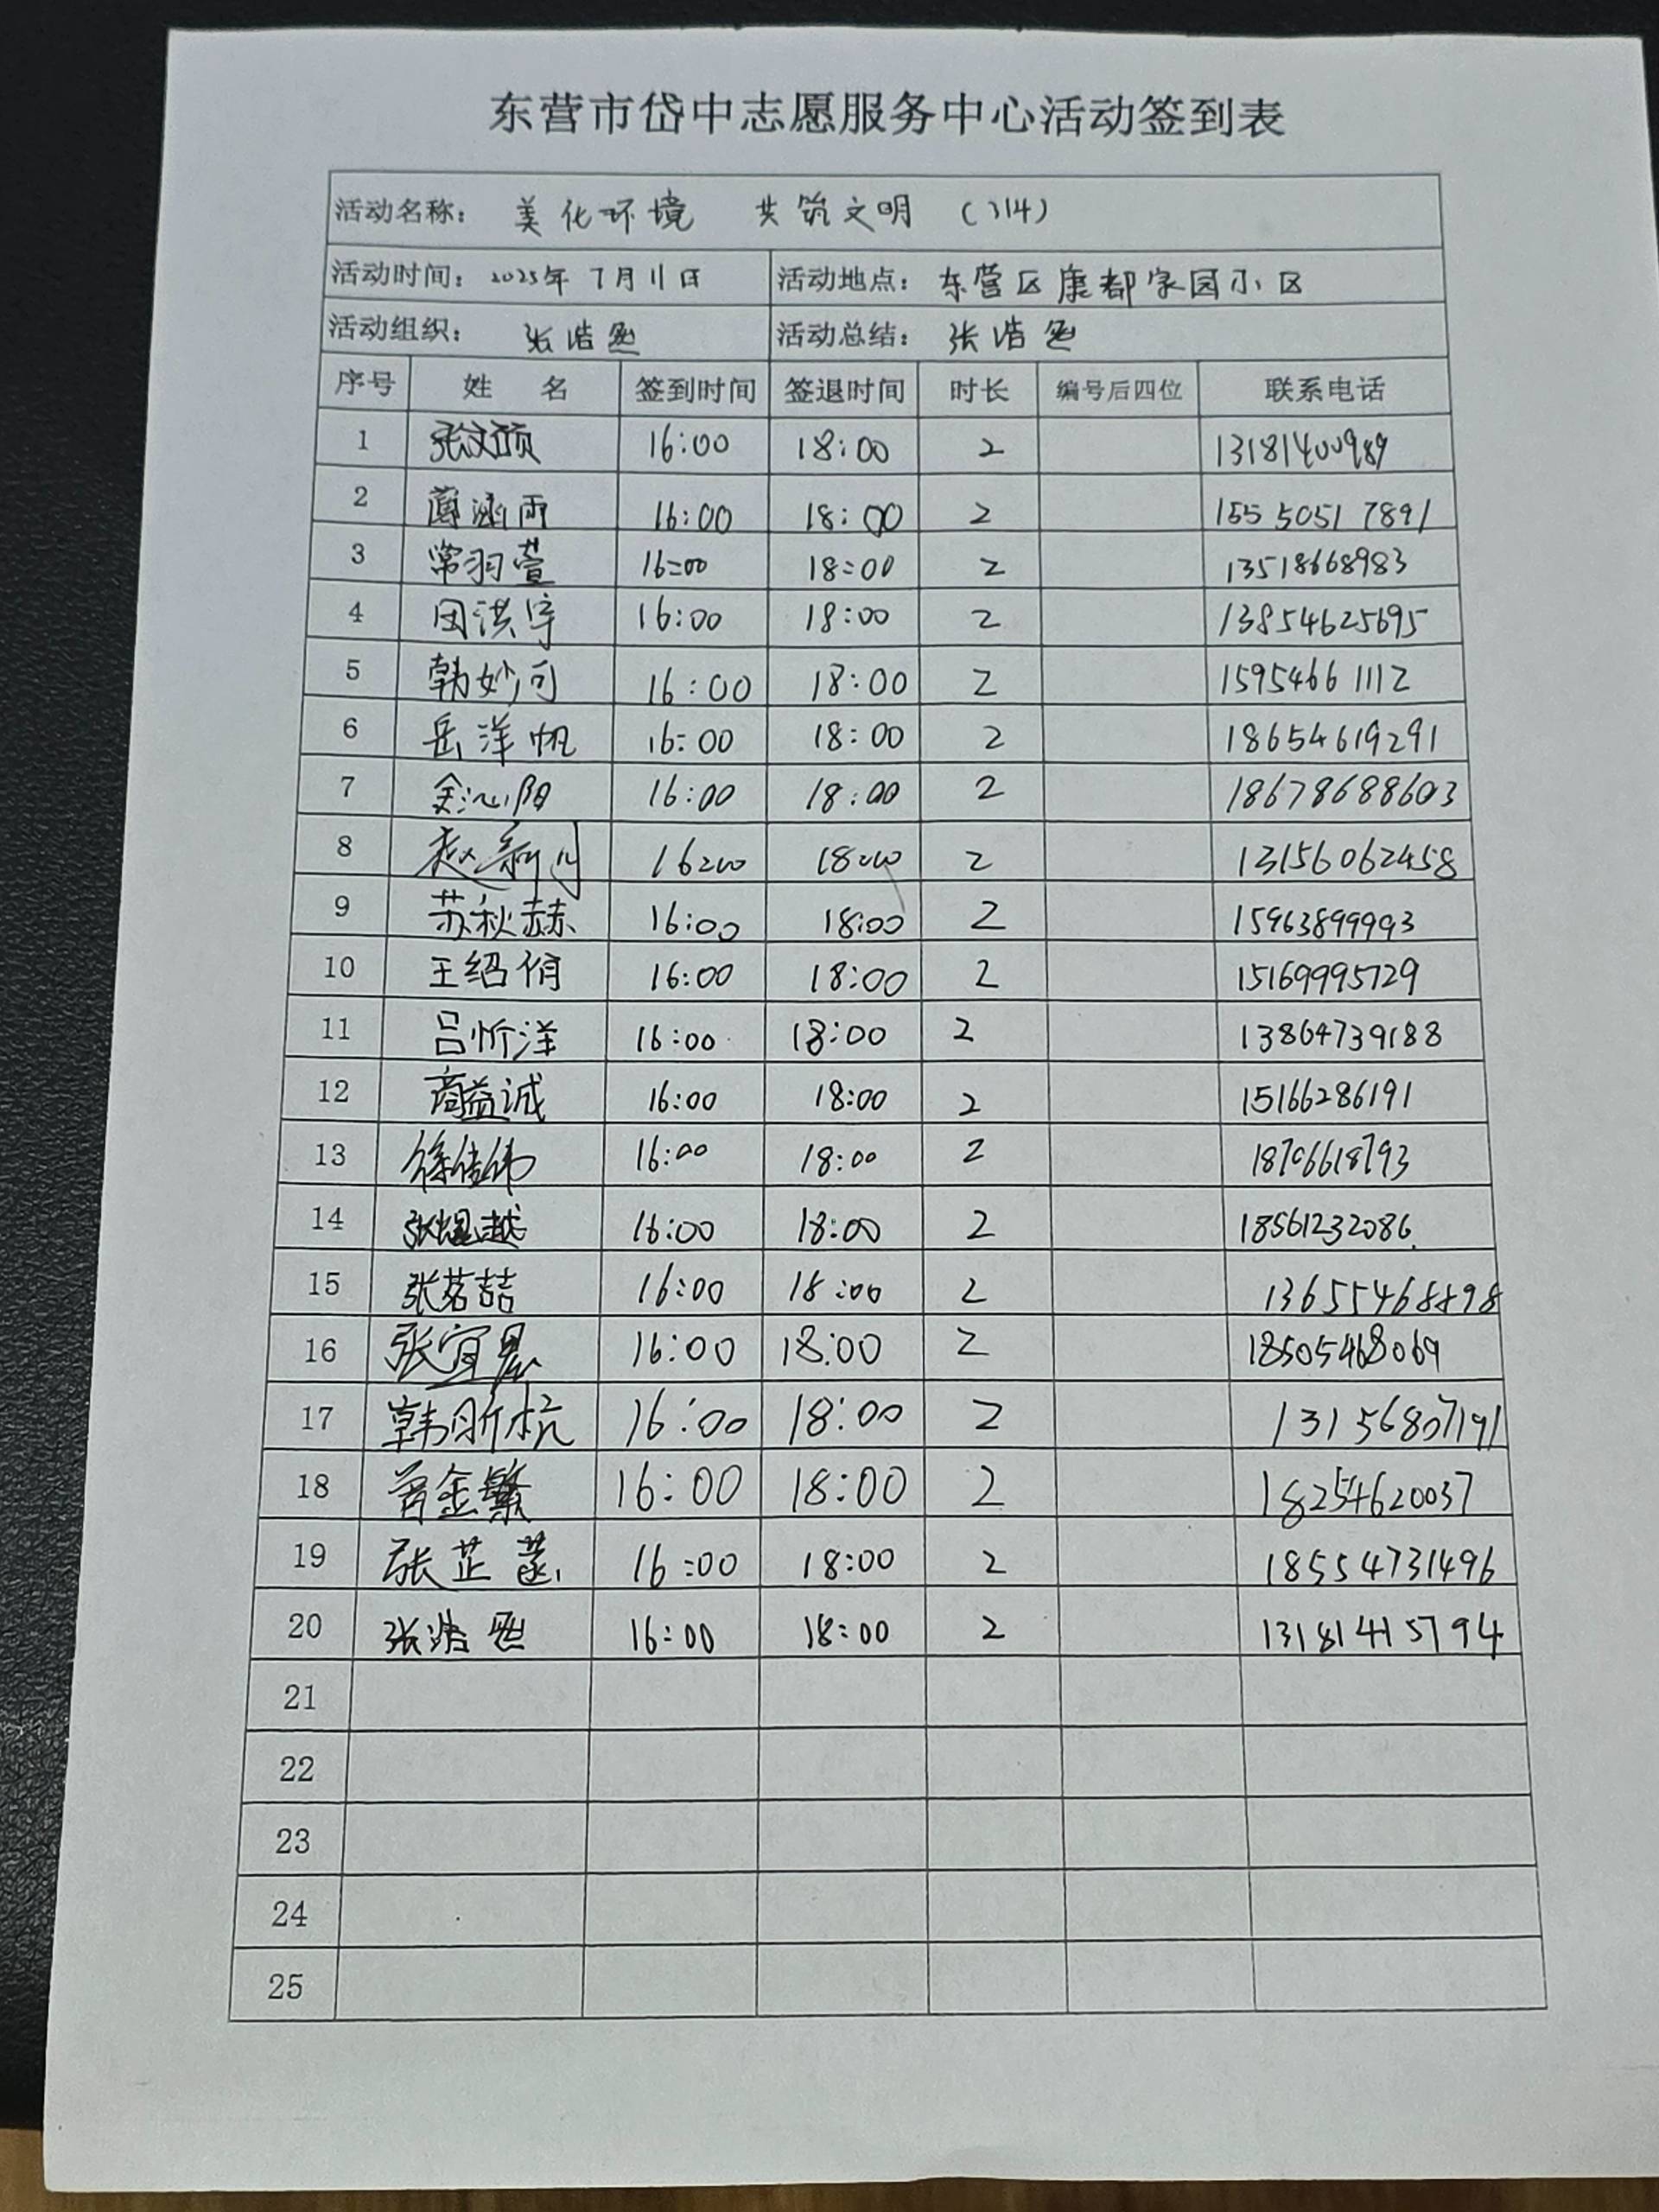 东营市岱中志愿服务中心活动签到表
活动名称： 美化环境 共筑文明 (314)
活动时间： 2025年7月11日 活动地点： 东营区康都家园小区
活动组织： 张浩 活动总结： 张浩
序号 姓 名 签到时间 签退时间 时长 编号后四位 联系电话
1 张文颐 16:00 18:00 2 13181400989
2 涵雨 16:00 18:00 2 15550517891
3 常羽萱 16:00 18:00 2 13518668983
4 田洪宇 16:00 18:00 2 13854625695
5 韩妙可 16:00 18:00 2 15954661112
6 岳洋帆 16:00 18:00 2 18654619291
7 余沁阳 16:00 18:00 2 18678688603
8 赵新月 16:00 18:00 2 13156062458
9 苏秋赫 16:00 18:00 2 15963899993
10 王绍脩 16:00 18:00 2 15169995729
11 吕忻洋 16:00 18:00 2 13864739188
12 商益诚 16:00 18:00 2 15166286191
13 徐佳伟 16:00 18:00 2 18706618793
14 张越 16:00 18:00 2 18561232086
15 张茗喆 16:00 18:00 2 13655468898
16 张宜晨 16:00 18:00 2 18505468069
17 韩昕杭 16:00 18:00 2 13156807191
18 曾金繁 16:00 18:00 2 18254620037
19 张芷菡 16:00 18:00 2 18554731496
20 张浩 16:00 18:00 2 13181415794
21
22
23
24
25